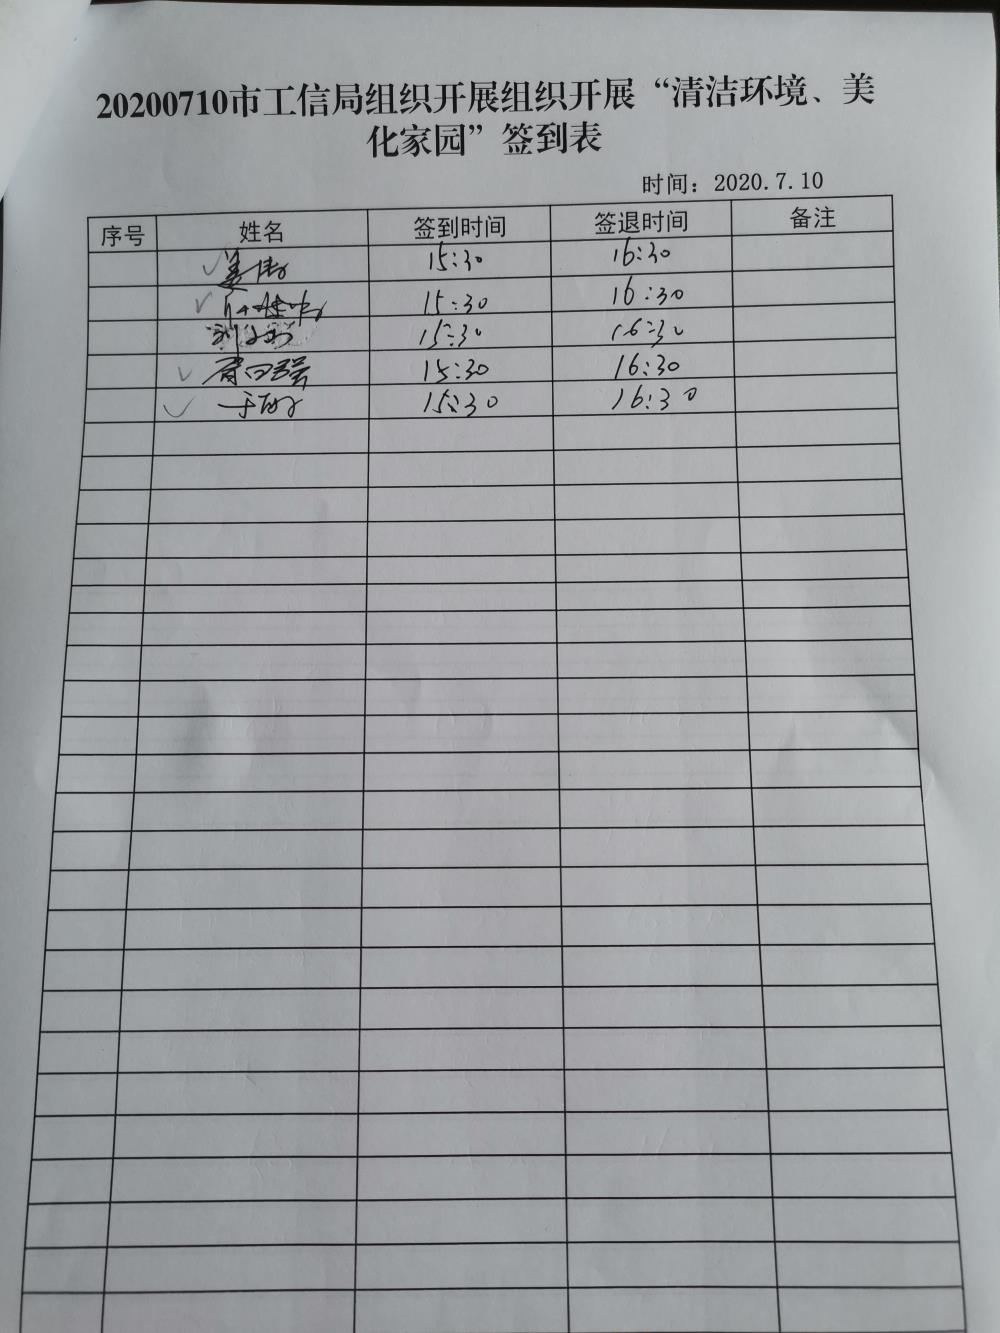 20200710市工信局组织开展组织开展“清洁环境、美
化家园”签到表
时间：2020.7.10
序号 姓名 签到时间 签退时间 备注
15:30 16:30
15:30 16:30
15:30 16:30
15:30 16:30
15:30 16:30